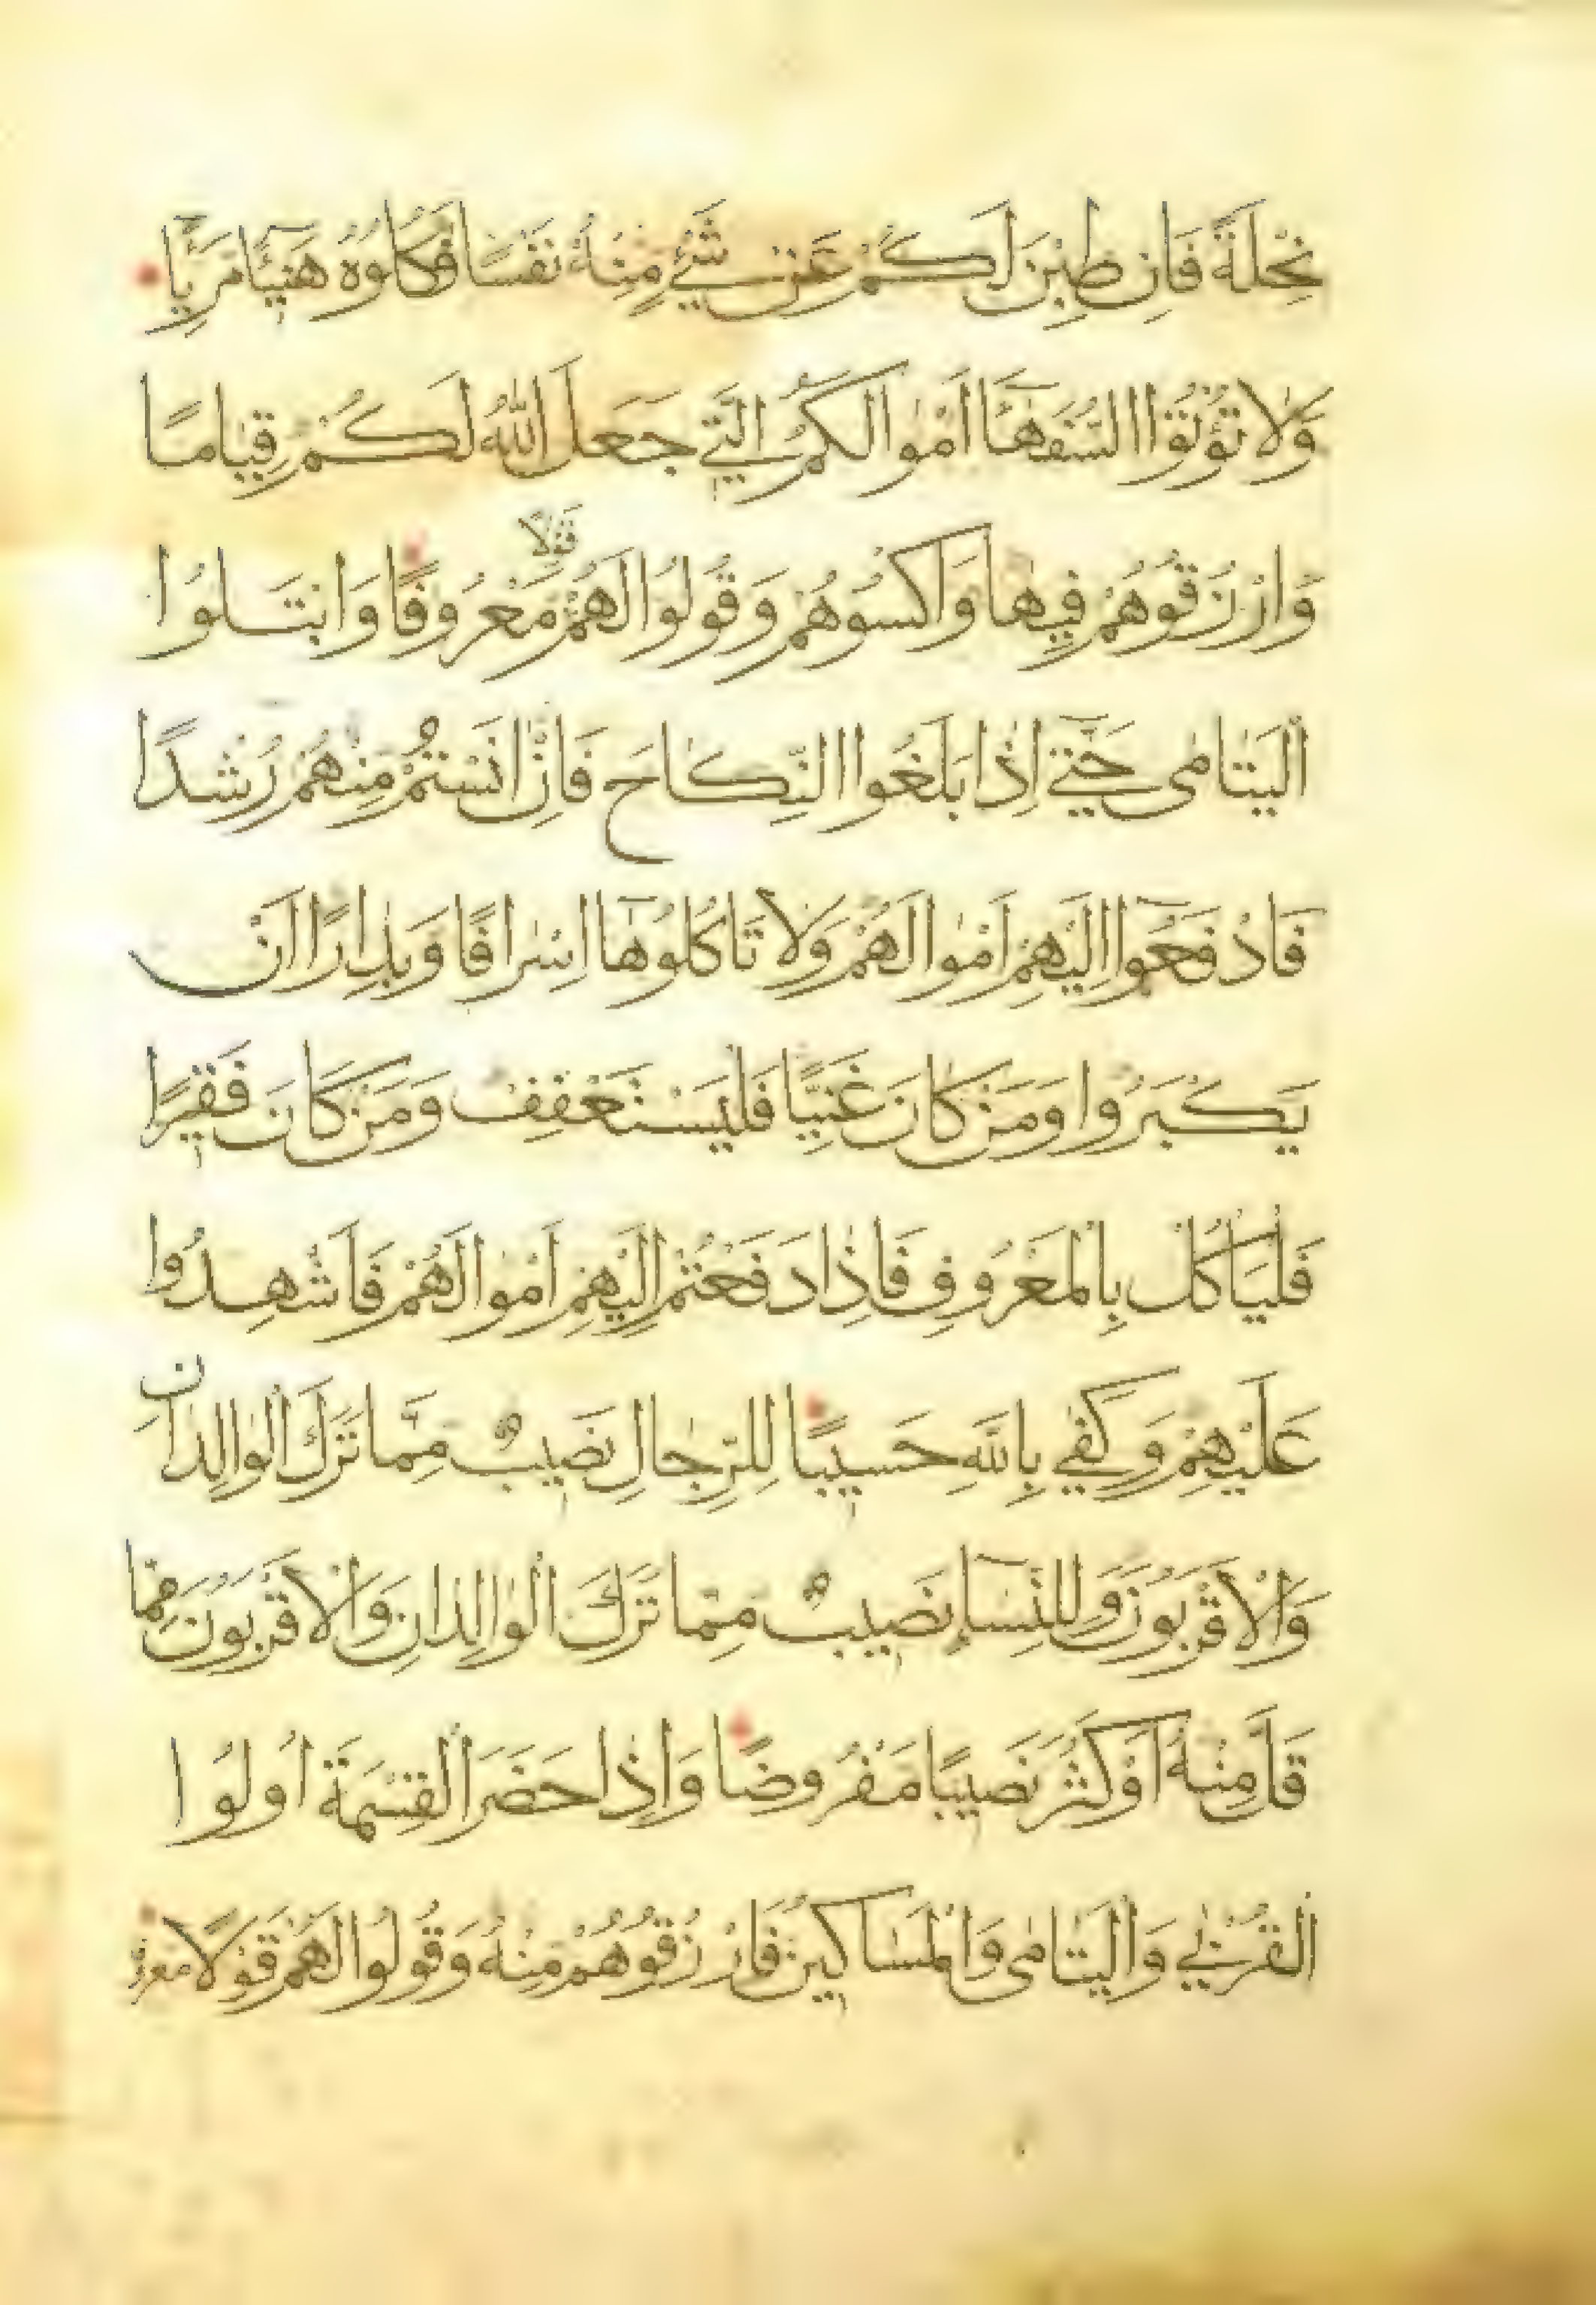 نِحْلَةً فَاِن طِبْنَ لَكُمْ عَنْ شَيْءٍ مِنْهُ نَفْسًا فَكُلُوهُ هَنِيـًٔا مَرِيـًٔا
وَلَا تُؤْتُوا السُّفَهَآءَ اَمْوَالَكُمُ الَّتِي جَعَلَ اللّٰهُ لَكُمْ قِيَامًا
وَارْزُقُوهُمْ فِيهَا وَاكْسُوهُمْ وَقُولُوا لَهُمْ قَوْلًا مَعْرُوفًا وَابْتَلُوا
الْيَتَامٰى حَتّٰٓى اِذَا بَلَغُوا النِّكَاحَ فَاِنْ اٰنَسْتُمْ مِنْهُمْ رُشْدًا
فَادْفَعُوٓا اِلَيْهِمْ اَمْوَالَهُمْ وَلَا تَاْكُلُوهَٓا اِسْرَافًا وَبِدَارًا اَنْ
يَكْبَرُوا وَمَنْ كَانَ غَنِيًّا فَلْيَسْتَعْفِفْ وَمَنْ كَانَ فَقِيرًا
فَلْيَاْكُلْ بِالْمَعْرُوفِ فَاِذَا دَفَعْتُمْ اِلَيْهِمْ اَمْوَالَهُمْ فَاَشْهِدُوا
عَلَيْهِمْ وَكَفٰى بِاللّٰهِ حَسِيبًا لِلرِّجَالِ نَصِيبٌ مِمَّا تَرَكَ الْوَالِدَانِ
وَالْاَقْرَبُونَ وَلِلنِّسَآءِ نَصِيبٌ مِمَّا تَرَكَ الْوَالِدَانِ وَالْاَقْرَبُونَ مِمَّا
قَلَّ مِنْهُ اَوْ كَثُرَ نَصِيبًا مَفْرُوضًا وَاِذَا حَضَرَ الْقِسْمَةَ اُولُوا
الْقُرْبٰى وَالْيَتَامٰى وَالْمَسَاكِينُ فَارْزُقُوهُمْ مِنْهُ وَقُولُوا لَهُمْ قَوْلًا